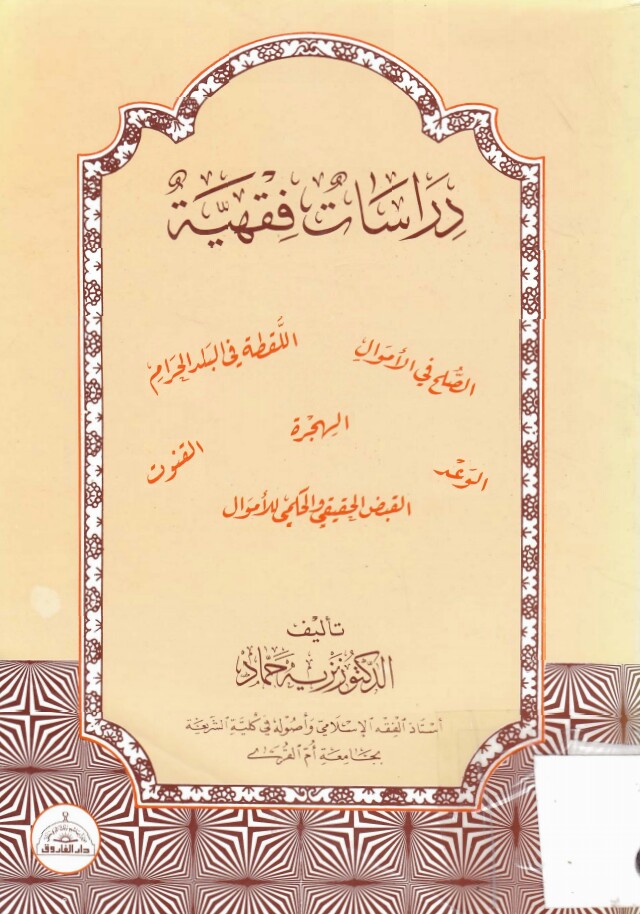 دِرَاسَاتٌ فِقْهِيَّةٌ
الصُّلح في الأموَالِ
اللُّقطة في البَلد الحَرامِ
الهِجْرة
الوَعْد
القنوت
القبض الحقيقي والحكمي للأموَال
تأليف
الدكتور نزيه حَمَّاد
أستاذ الفِقه الإسْلامي وَأصُوله في كليَّة الشريعَة
بجَامعَة أمّ القُرىٰ
دار الفاروق